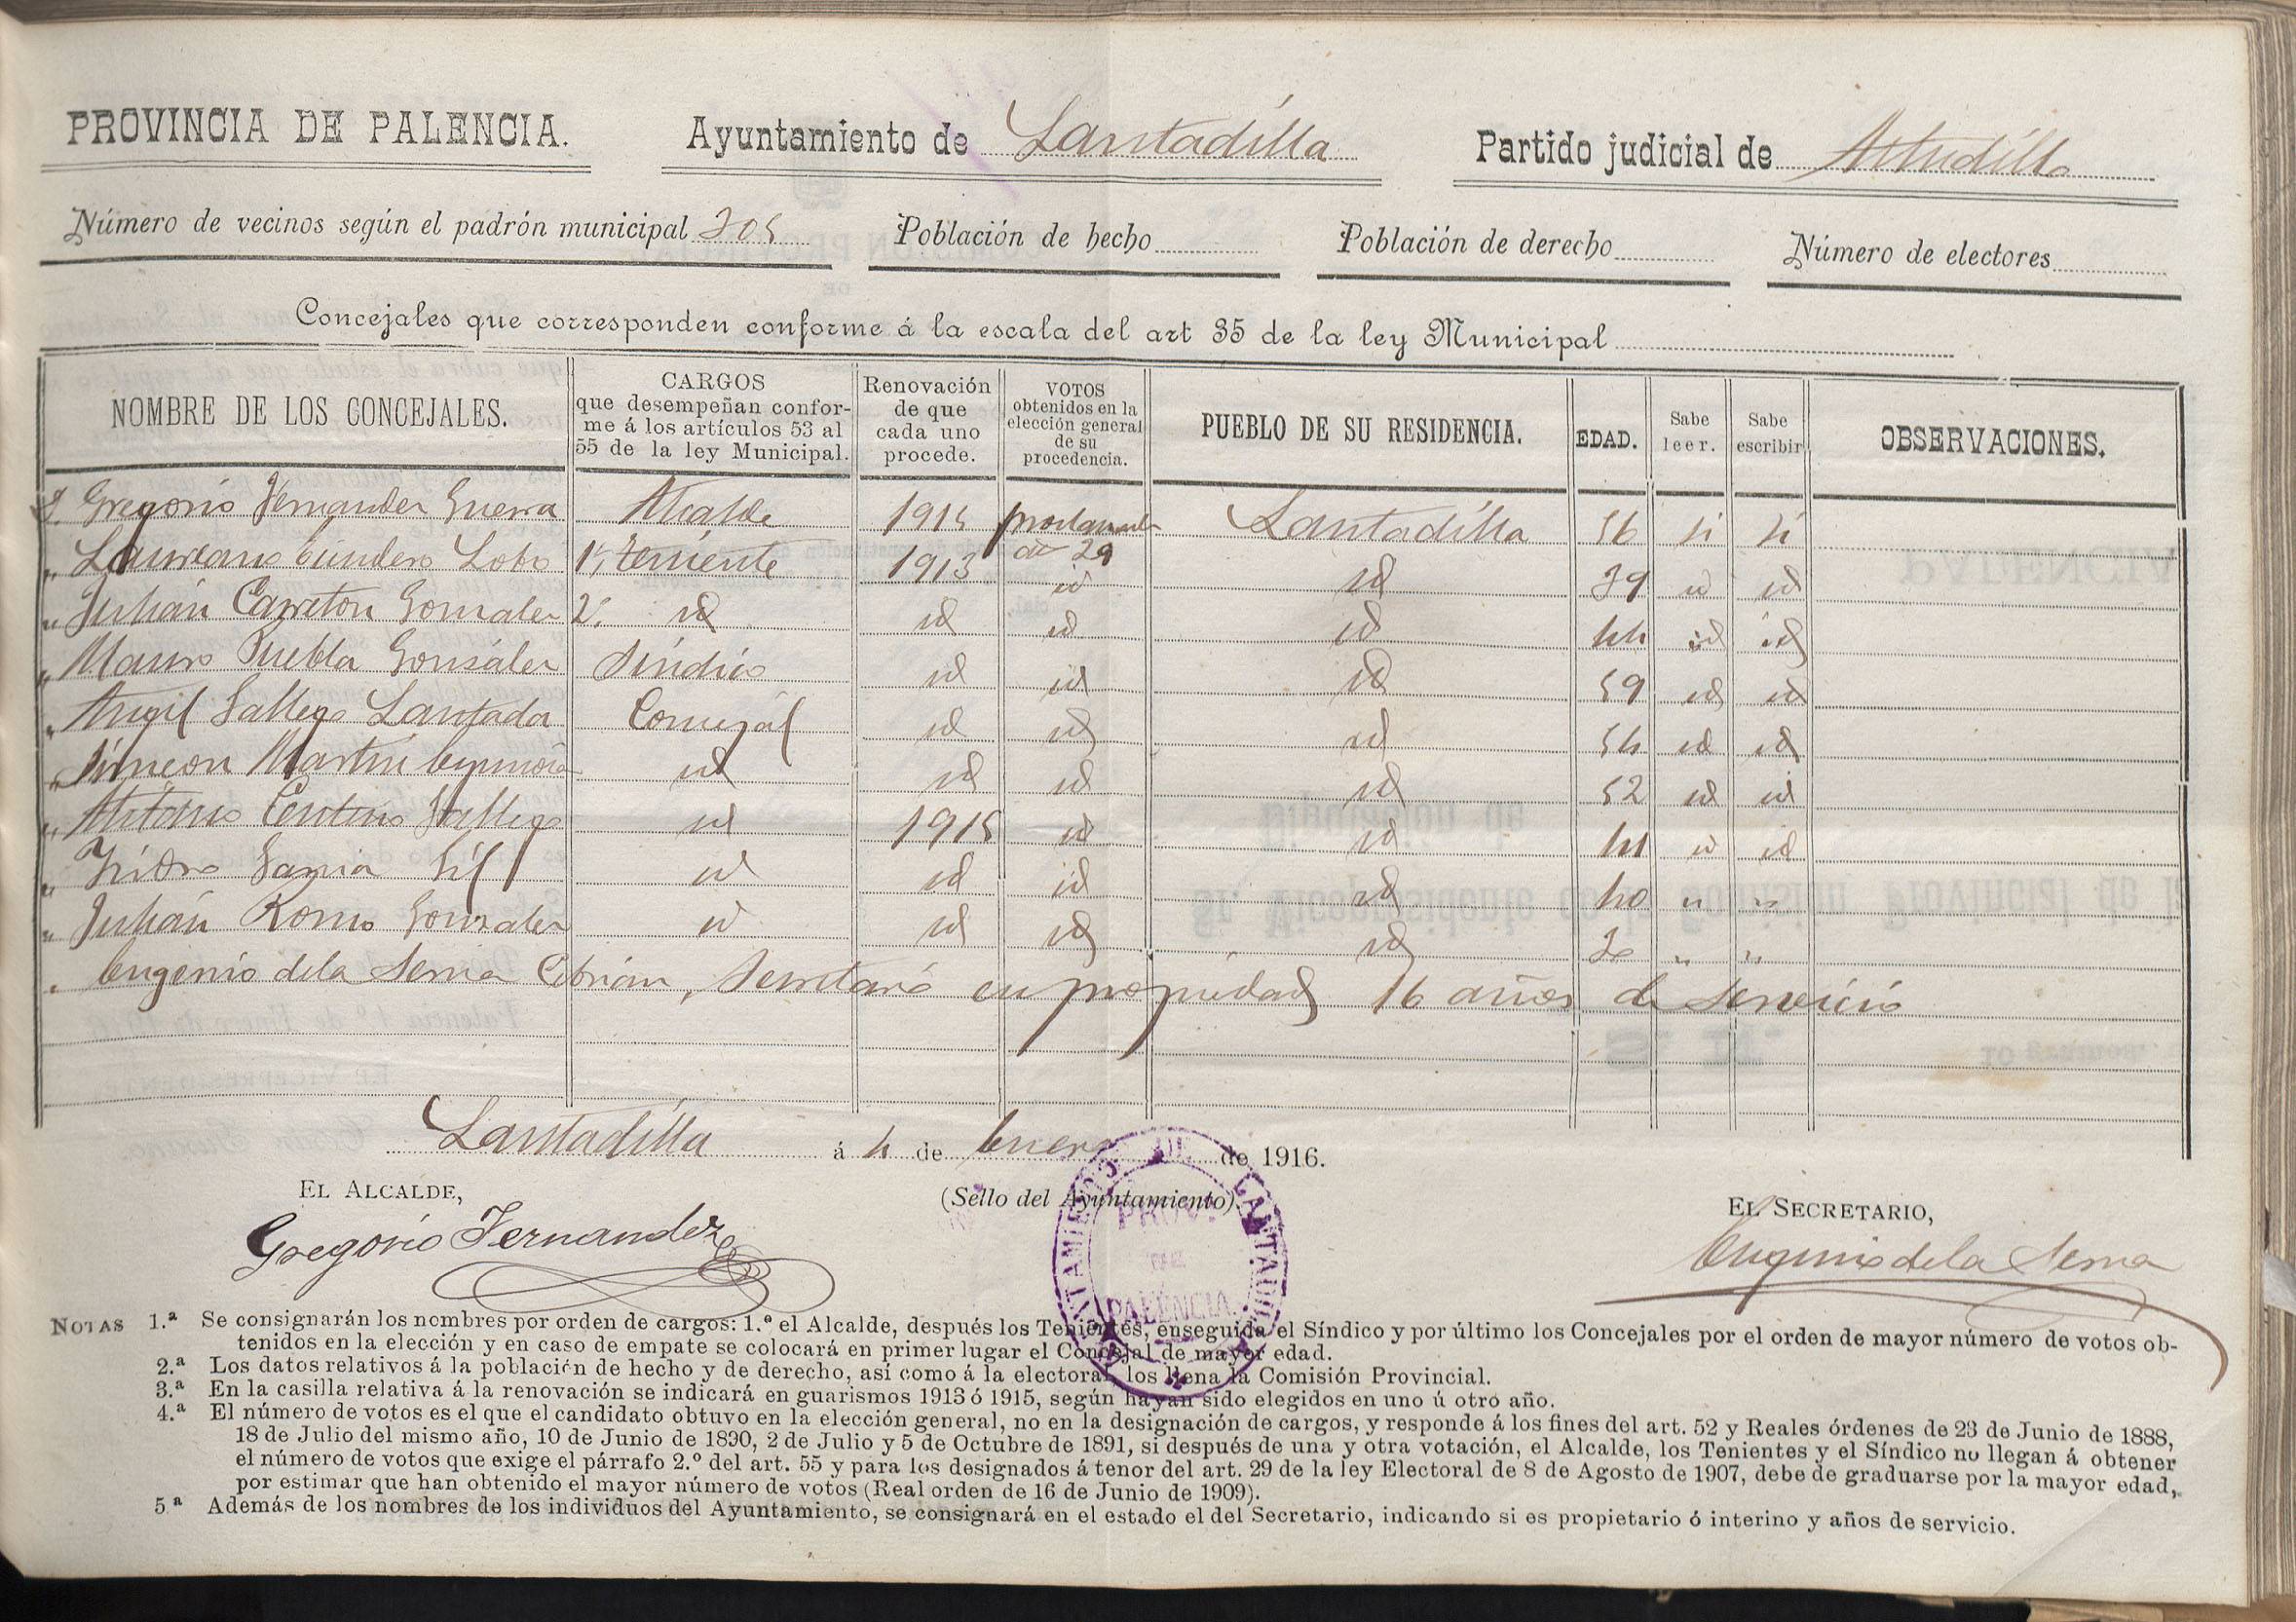 PROVINCIA DE PALENCIA. Ayuntamiento de Lantadilla Partido judicial de Astudillo
Número de vecinos según el padrón municipal 305 Población de hecho Población de derecho Número de electores
Concejales que corresponden conforme á la escala del art 35 de la ley Municipal
NOMBRE DE LOS CONCEJALES. CARGOS que desempeñan conforme á los artículos 53 al 55 de la ley Municipal. Renovación de que cada uno procede. VOTOS obtenidos en la elección general de su procedencia. PUEBLO DE SU RESIDENCIA. EDAD. Sabe leer. Sabe escribir OBSERVACIONES.
D. Gregorio Fernandez Guerra Alcalde 1915 Lantadilla 56 si si
" Laureano Lobo 1º teniente 1913 id id 39 id id
" Julián Carreton Gonzalez 2º id id id id 44 id id
" Mauro Puebla Gonzálex Síndico id id id 59 id id
" Angel Gallego Lantada Concejal id id id 54 id id
" Simeon Martin id id id id 52 id id
" Antonio Centeno Gallego id 1915 id id 41 id id
" Isidro Garcia Gil id id id id 40 " "
" Julián Romo Gonzalez id id id id " "
" Eugenio de la Serna Cebrián, Secretario en propiedad 16 años de servicio
Lantadilla á 4 de Enero de 1916.
EL ALCALDE, (Sello del Ayuntamiento). EL SECRETARIO,
Gregorio Fernandez Eugenio de la Serna
AYUNTAMIENTO DE LANTADILLA PROV. PALENCIA
NOTAS 1.ª Se consignarán los nombres por orden de cargos: 1.º el Alcalde, después los Tenientes, enseguida el Síndico y por último los Concejales por el orden de mayor número de votos ob-
tenidos en la elección y en caso de empate se colocará en primer lugar el Concejal de mayor edad.
2.ª Los datos relativos á la población de hecho y de derecho, así como á la electoral, los llena la Comisión Provincial.
3.ª En la casilla relativa á la renovación se indicará en guarismos 1913 ó 1915, según hayan sido elegidos en uno ú otro año.
4.ª El número de votos es el que el candidato obtuvo en la elección general, no en la designación de cargos, y responde á los fines del art. 52 y Reales órdenes de 23 de Junio de 1888,
18 de Julio del mismo año, 10 de Junio de 1890, 2 de Julio y 5 de Octubre de 1891, si después de una y otra votación, el Alcalde, los Tenientes y el Síndico no llegan á obtener
el número de votos que exige el párrafo 2.º del art. 55 y para los designados á tenor del art. 29 de la ley Electoral de 8 de Agosto de 1907, debe de graduarse por la mayor edad,
por estimar que han obtenido el mayor número de votos (Real orden de 16 de Junio de 1909).
5ª Además de los nombres de los individuos del Ayuntamiento, se consignará en el estado el del Secretario, indicando si es propietario ó interino y años de servicio.